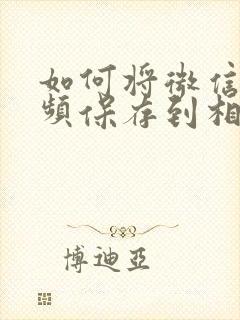 如何将微信
频保存到相
博迪亚